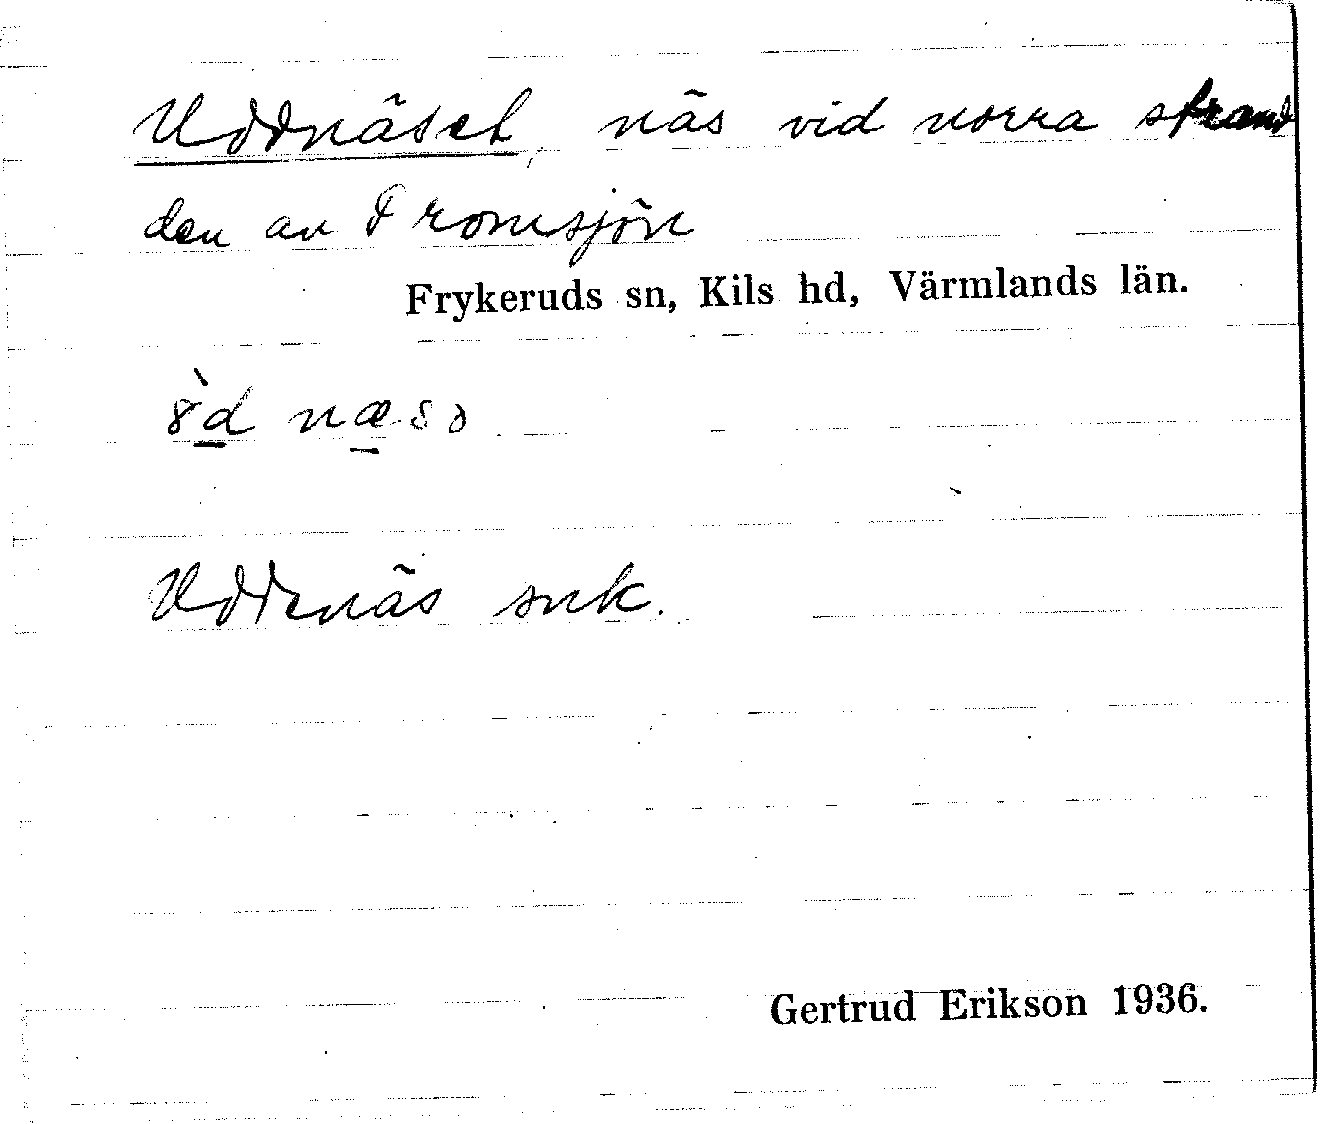 Uddnäset, näs vid norra strand
den av Fromsjön
Frykeruds sn, Kils hd, Värmlands län.
Uddenäs snk.
Gertrud Erikson 1936.